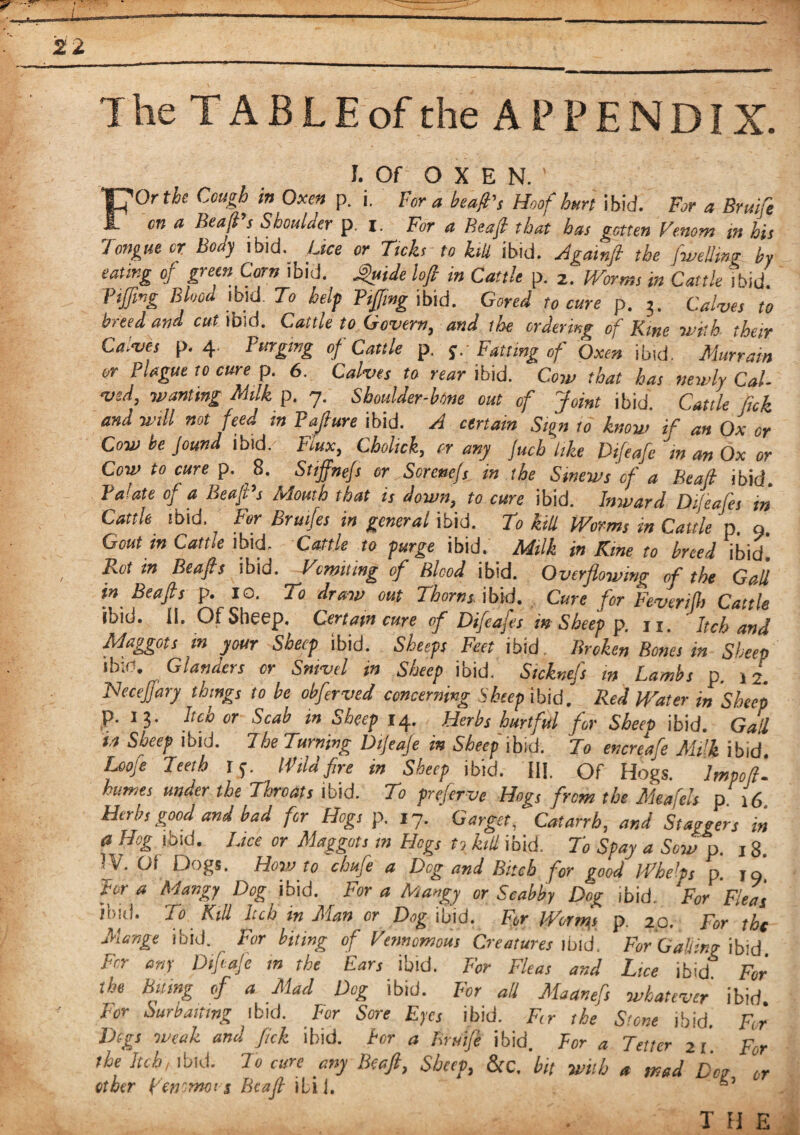 22
The TABLE of the APPENDIX.
I. Of OXEN.
FOr the Cough in Oxen p. i. For a beaſt's Hoof hurt ibid. For a Bruiſe
on a Beaſt's Shoulder p. 1. For a Beaſt that has gotten Venom in his
Tongue or Body ibid. Lice or Ticks to kill ibid. Againſt the ſwelling by
eating of green Corn ibid. Quide loſt in Cattle p. 2. Worms in Cattle ibid.
Piſſing Blood ibid. To help Piſſing ibid. Gored to cure p. 3. Calves to
breed and cut ibid. Cattle to Govern, and the ordering of Kine with their
Calves p. 4. Purging of Cattle p. 5. Fatting of Oxen ibid. Murrain
or Plague to cure p. 6. Calves to rear ibid. Cow that has newly Cal-
ved, wanting Milk p. 7. Shoulder-bone out of Joint ibid. Cattle ſick
and will not feed in Paſture ibid. A certain Sign to know if an Ox or
Cow be ſound ibid. Flux, Cholick, or any ſuch like Diſeaſe in an Ox or
Cow to cure p. 8. Stiffneſs or Soreneſs in the Sinews of a Beaſt ibid.
Palate of a Beaſt's Mouth that is down, to cure ibid. Inward Diſeaſes in
Cattle ibid. For Bruiſes in general ibid. To kill Worms in Cattle p. 9.
Gout in Cattle ibid. Cattle to purge ibid. Milk in Kine to breed ibid.
Rot in Beaſts ibid. Vomiting of Blood ibid. Overflowing of the Gall
in Beaſts p. 10. To draw out Thorns ibid. Cure for Feveriſh Cattle
ibid. II. Of Sheep. Certain cure of Diſeaſes in Sheep p. 11. Itch and
Maggots in your Sheep ibid. Sheeps Feet ibid. Broken Bones in Sheep
ibid. Glanders or Snivel in Sheep ibid. Sickneſs in Lambs p. 12.
Neceſſary things to be obſerved concerning Sheep ibid. Red Water in Sheep
p. 13. Itch or Scab in Sheep 14. Herbs hurtful for Sheep ibid. Gall
in Sheep ibid. The Turning Diſeaſe in Sheep ibid. To encreaſe Milk ibid.
Looſe Teeth 15. Wild fire in Sheep ibid. III. Of Hogs. Impoſt-
humes under the Throats ibid. To preſerve Hogs from the Meaſels p. 16.
Herbs good and bad for Hogs p. 17. Garget, Catarrh, and Staggers in
a Hog ibid. Lice or Maggots in Hogs to kill ibid. To Spay a Sow p. 18.
IV. Of Dogs. How to chuſe a Dog and Bitch for good Whelps p. 19.
For a Mangy Dog ibid. For a Mangy or Scabby Dog ibid. For Fleas
ibid. To Kill Itch in Man or Dog ibid. For Worms p. 20. For the
Mange ibid. For biting of Vennomous Creatures ibid. For Galling ibid.
For any Diſeaſe in the Ears ibid. For Fleas and Lice ibid. For
the Biting of a Mad Dog ibid. For all Madneſs whatever ibid.
For Surbaitting ibid. For Sore Eyes ibid. For the Stone ibid. For
Dogs weak and ſick ibid. For a Bruiſe ibid. For a Tetter 21. For
the Itch, ibid. To cure any Beaſt, Sheep, &c. bit with a mad Dog, or
other Venomous Beaſt ibid.
THE